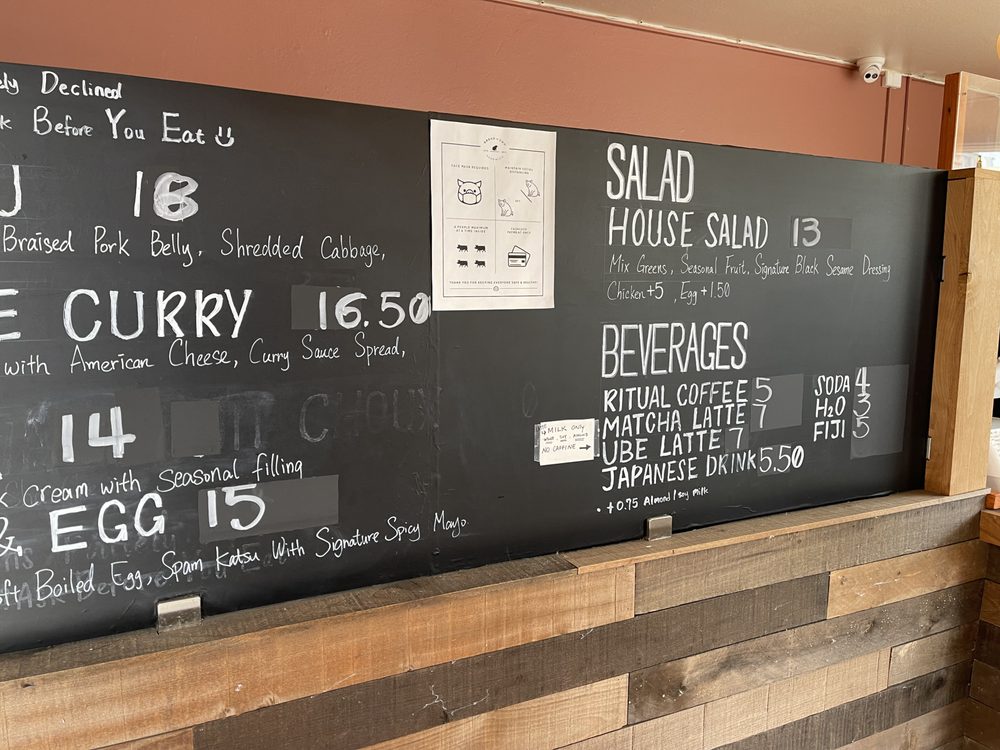 ely Declined
k Before You Eat
J 18
Braised Pork Belly, Shredded Cabbage,
E CURRY 16.50
with American Cheese, Curry Sauce Spread,
14
k cream with seasonal filling
& EGG 15
oft Boiled Egg, Spam Katsu With Signature Spicy Mayo
FACE MASK REQUIRED
MAINTAIN SOCIAL DISTANCING
THANK YOU FOR KEEPING EVERYONE SAFE & HEALTHY!
SALAD
HOUSE SALAD 13
Mix Greens, Seasonal Fruit, Signature Black Sesame Dressing
Chicken +5, Egg +1.50
BEVERAGES
RITUAL COFFEE 5
MATCHA LATTE 7
UBE LATTE 7
JAPANESE DRINK 5.50
• +0.75 Almond/soy milk
SODA 4
H2O 3
FIJI 5
MILK ONLY
NO CAFFEINE →